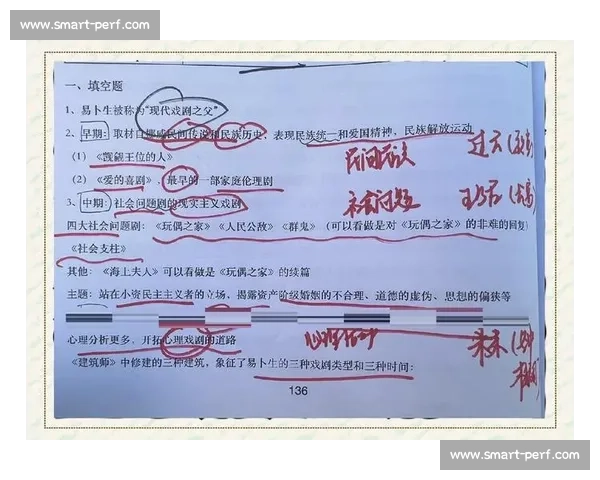 www.smart-perf.com
一、填空题
1、易卜生被称为"现代戏剧之父"
2、早期：取材自挪威民间传说和民族历史，表现民族统一和爱国精神，民族解放运动
(1)《觊觎王位的人》
民间民族
过去(
(2)《爱的喜剧》，最早的一部家庭伦理剧
3、中期：社会问题剧的现实主义戏剧
社会问题
四大社会问题剧：《玩偶之家》《人民公敌》《群鬼》（可以看做是对《玩偶之家》的非难的回复）
《社会支柱》
其他：《海上夫人》可以看做是《玩偶之家》的续篇
主题：站在小资民主主义者的立场、揭露资产阶级婚姻的不合理、道德的虚伪、思想的偏狭等
心理分析更多，开拓心理戏剧的道路
心理
未来(
《建筑师》中修建的三种建筑，象征了易卜生的三种戏剧类型和三种时间：
136
www.smart-perf.com